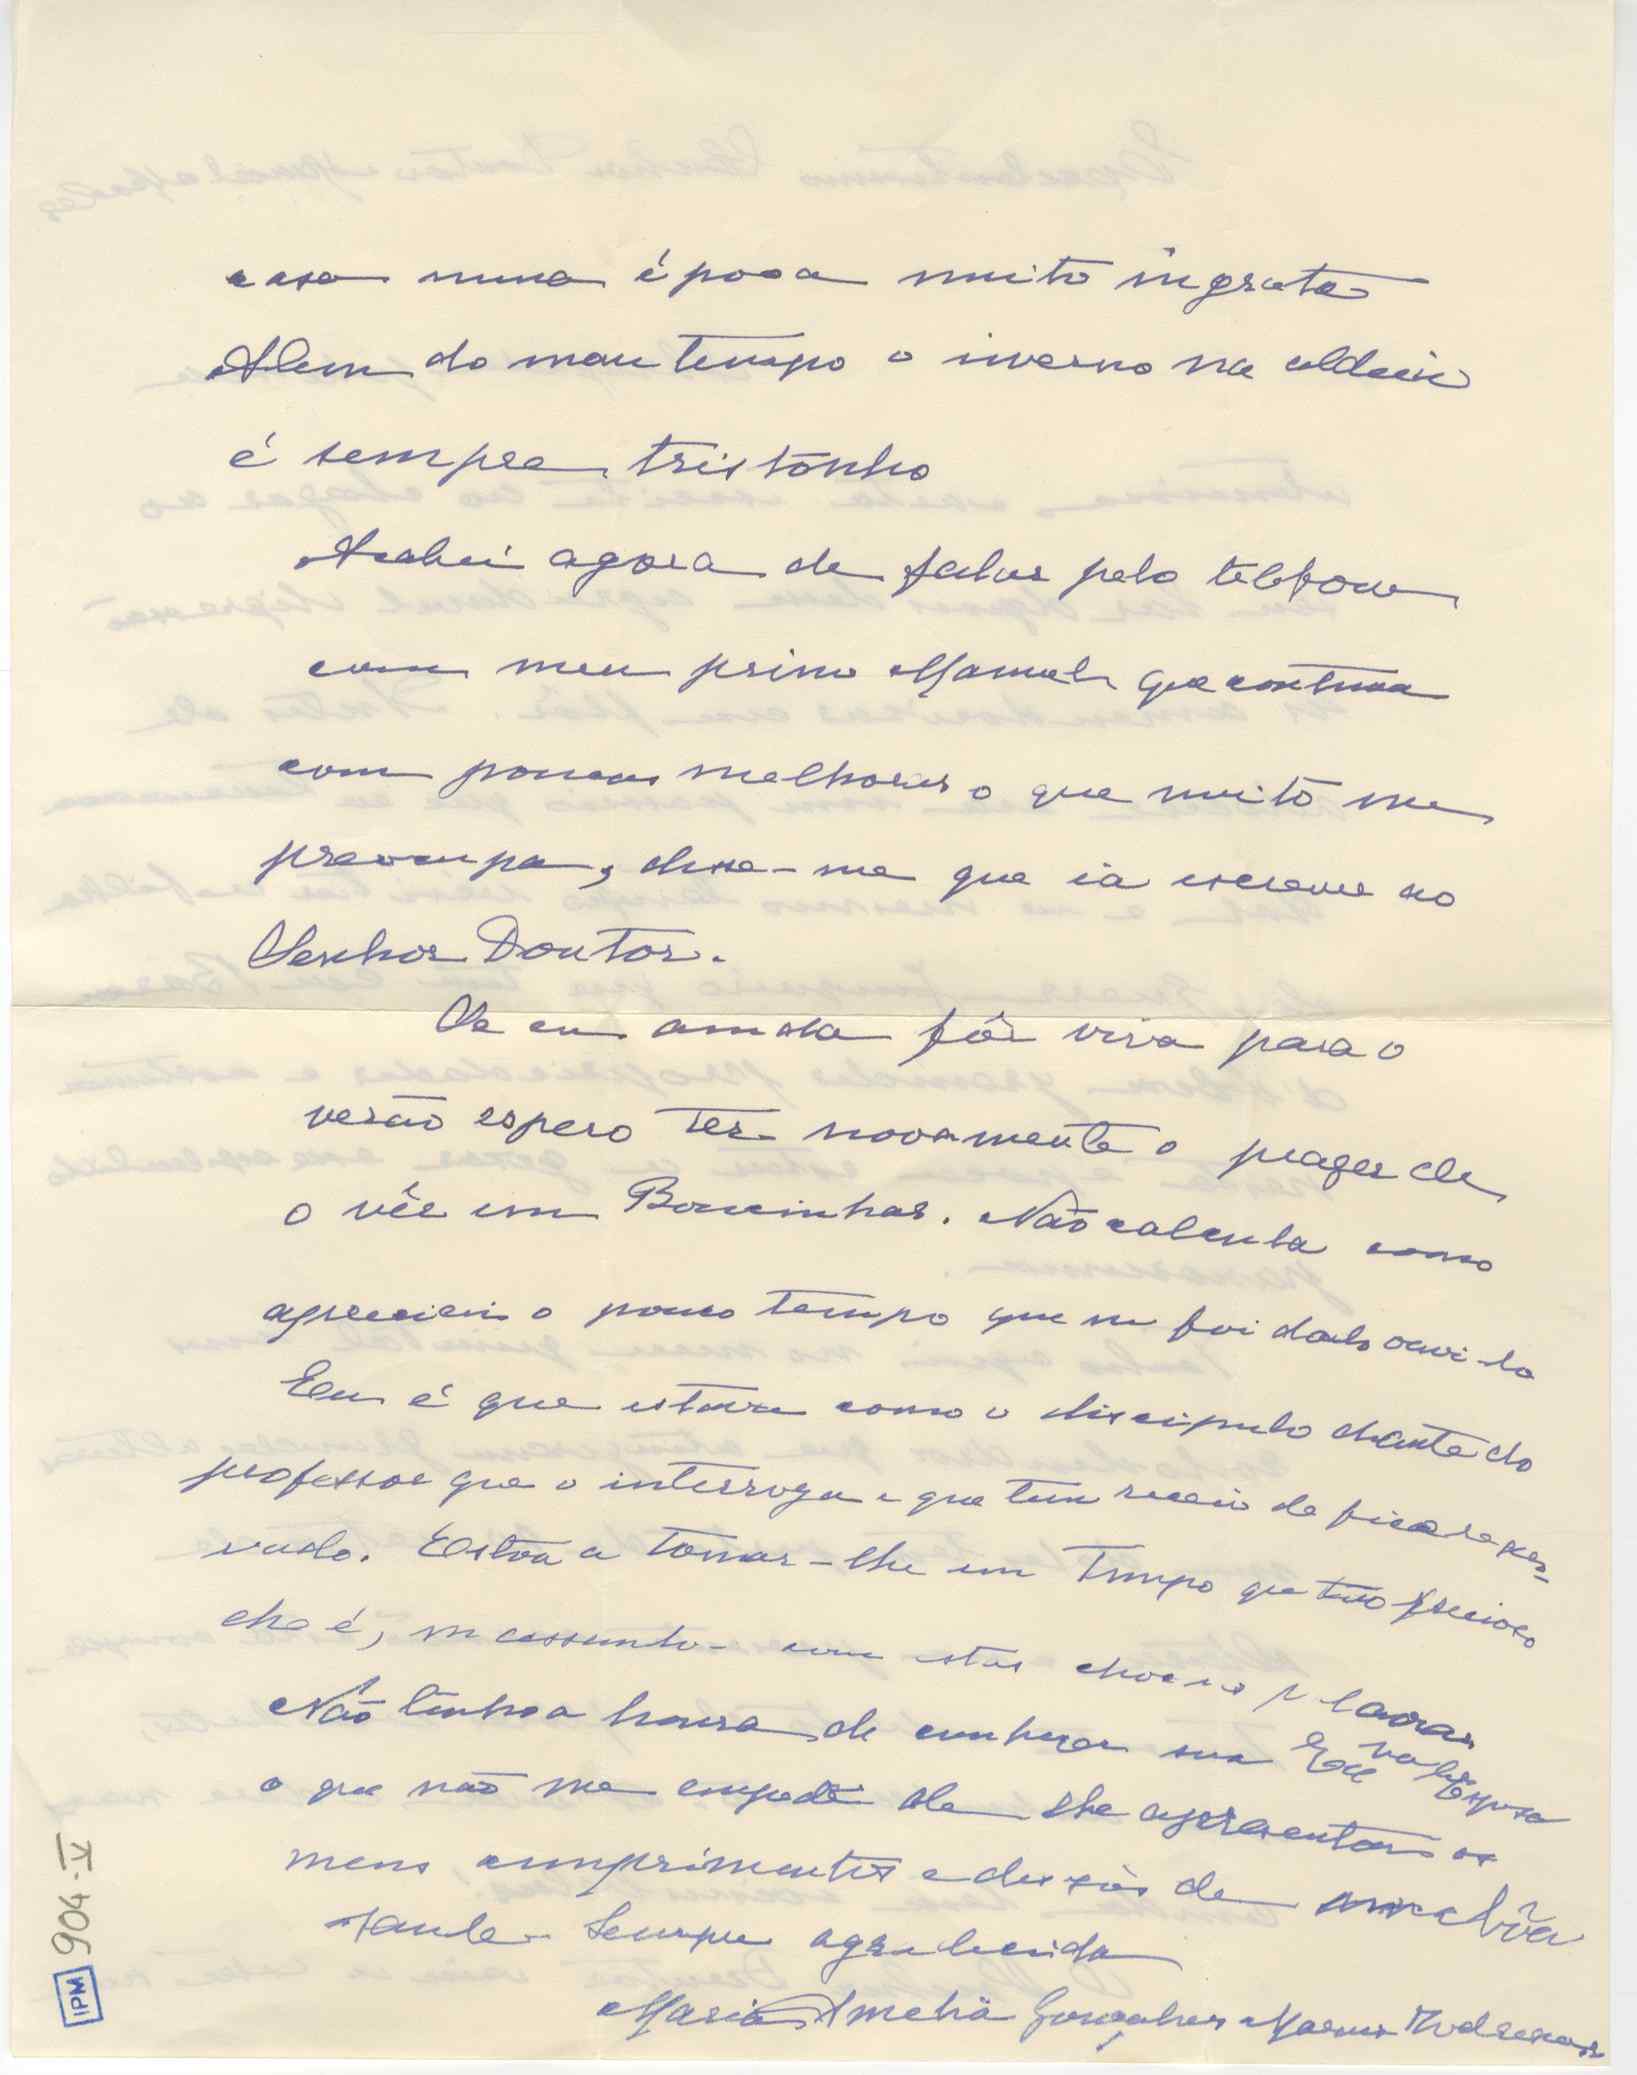 casa numa época muito ingrata
Alem do mau tempo o inverno na aldeia
é sempre tristonho
Acabei agora de falar pelo telefone
com meu primo Manuel que continua
com poucas melhoras o que muito me
preocupa, disse-me que ia escrever ao
Senhor Doutor.
Se eu ainda fôr viva para o
verão espero ter novamente o prazer de
o vêr em Boucinhas. Não calcula como
apreciei o pouco tempo que me foi dado ouvi-lo
Eu é que estava como o discipulo diante do
professor que o interroga e que tem receio de ficar repro-
vado. Estou a tomar-lhe um tempo que tão precioso
lhe é, com estas
Não tenho a honra de conhecer sua Esposa
o que não me empede de lhe apresentar os
meus cumprimentos e desejos de bôa
saude. Sempre agradecida
Maria Amelia Gonçalves
904-V
IPM